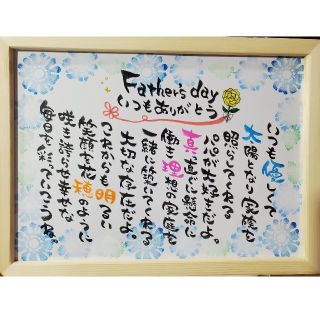 Father's day
いつもありがとう
いつも優しくて
太陽となり家族を
照らしてくれる
パパが大好きだよ。
真っ直ぐに懸命に
働き理想の家庭を
一緒に築いてくれる
大切な存在だよ。
これからも明るい
笑顔を穂のように
咲き誇らせ幸せな
毎日を